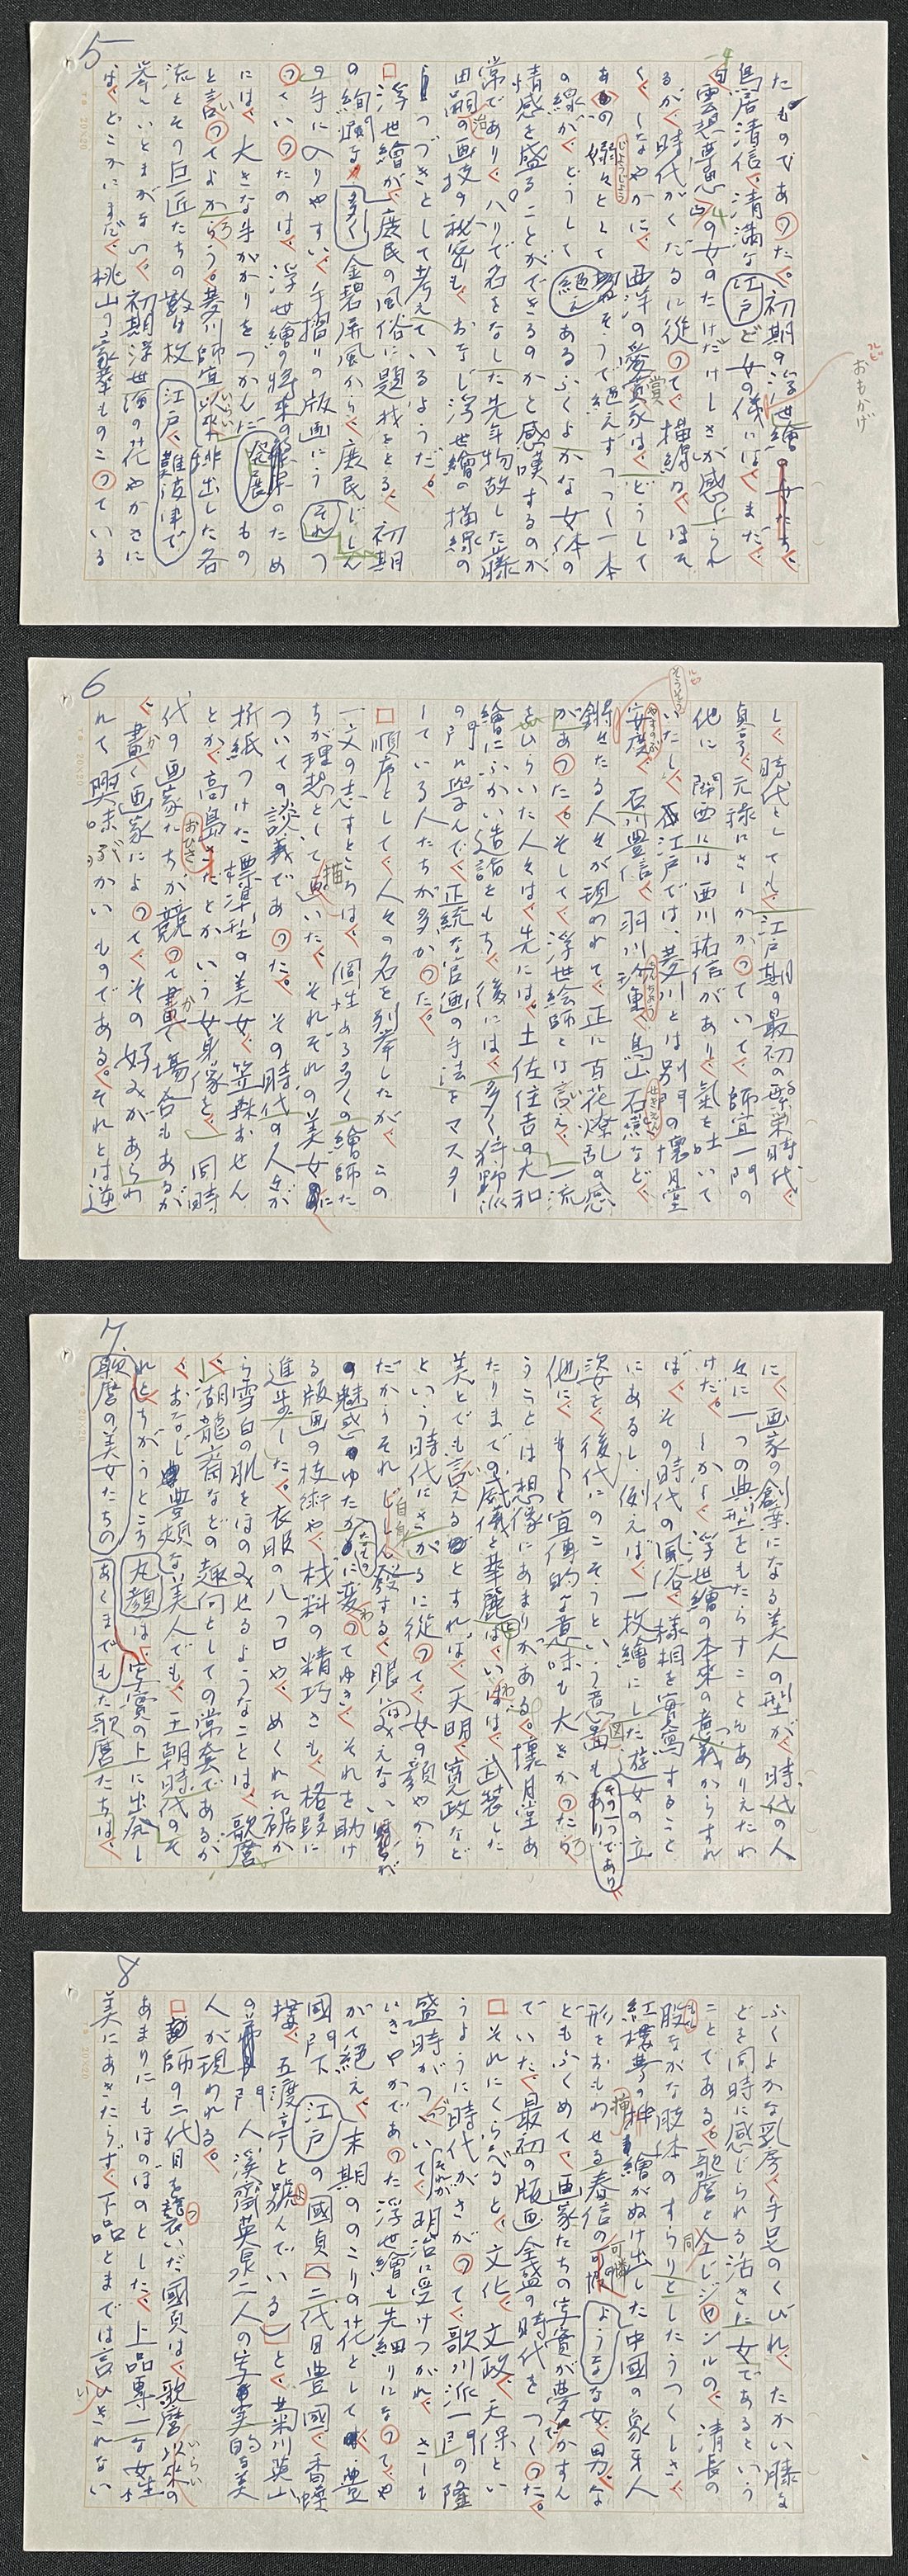 5
たものであった。初期の浮世繪の女たち、
鳥居清信、清満な江戸ど女の俤には、まだ、
「雲想夢思」の女のたけだけしさが感じられ
るが、時代がくだるに從って、描線は、ほそ
く、しなやかに、西洋の愛賞家は、どうして
あの嫋々として
の線が、どうして あるふくよかな女体の
情感を盛ることができるのかと感嘆するのが
常であり、ハリで名をなした先年物故した藤
田嗣治の画技の秘密も、おなじ浮世繪の描線の
つづきとして考えているようだ。
浮世繪が、庶民の風俗に題材をとる、初期
の絢爛な 多く 金碧屏風から、庶民じしん
の手に入りやすい、手摺りの版画にうそれつ
っていったのは、浮世繪の将来の発展のため
には、大きな手がかりをつかんだもの
と言ってよかろう。菱川師宣以來輩出した各
流とその巨匠たちの数は枚 江戸、難波津で
挙にいとまがない。初期浮世繪の花やかさに
は、どこかにまだ、桃山の豪華ものこっている
6
し、時代としても、江戸期の最初の繁栄時代、
貞享、元禄にさしかかっていて、師宣一門の
他に関西には西川祐信があり、氣を吐いて
いたし、江戸では、菱川とは別門の懐月堂
安度、石川豊信、羽川珍重、鳥山石燕など、
錚々たる人々が現われて、正に百花燎乱の感
があった。そして、浮世絵師とは言え、一流
をひらいた人々は、先には、土佐住吉の大和
繪にふかい造詣をもち、後には、多く狩野派
の門に学んで、正統な官画の手法をマスター
している人たちが多かった。
順序として、人々の名を列挙したが、この
一文の志すところは、個性ある多くの繪師た
ちが理想として描いた、それぞれの美女に
ついての談義であった。その時代の人々が
折紙つけた標準型の美女、笠森おせん
とか、高島おひさとかいう女身像を、同時
代の画家たちが競って畫く場合もあるが
、畫く画家によって、その好みがあらわ
れて興味ぶかいものである。それとは逆
7
に、画家の創案になる美人の型が、時代の人
々に一つの典型をもたらすこともありえたわ
けだ。しかし、浮世繪の本來の意義からすれ
ば、その時代の風俗、様相を實寫すること
にあるし、例えば、一枚繪にした遊女の立
姿を、後代にのこそうという意図も その一つであり
他に、もっと宣傳的な意味も大きかったろ
うことは想像にあまりがある。懐月堂あ
たりまでの威儀と華麗は、いわば、武装した
美とでも言えるとすれば、天明、寛政など
という時代にさがるに從って、女の顔やから
だからそれじしん自身発する、眼にみえない
の魅惑ゆたかなものに変ってゆき、それを助け
る版画の技術や、材料の精巧さも、格段に
進歩した。衣服の八つ口や、めくれた裾か
ら雪白の肌をほのみせるようなことは、歌麿
、湖龍斎などの趣向としての常套であるが
、おなじ豊頬な美人でも、王朝時代のそ
れとちがうところ丸顔は、写實の上に出発し
歌麿の美女たちのあくまでもた歌麿たちは、
8
ふくよかな乳房、手足のくびれ、たかい膝な
どを同時に感じられる活きた女であるという
ことである。歌麿と同じジャンルの、清長の
股ながな肢体のすらりとしたうつくしさ、
紅樓夢の挿繪がぬけ出した中國の象牙人
形をおもわせる春信の可憐ような女、男な
どもふくめて、画家たちの写實が夢でかすん
でいた、最初の版画全盛の時代をつくった。
それにくらべると、文化、文政、天保とい
うように時代がさがって、歌川派一門の隆
盛時がつづいて、それが明治に受けつがれ、さしも
いきやかであった浮世繪も先細りになって、や
がて絶え、末期ののこりの花として、豊
國門下 江戸の國貞（二代目豊國、香蝶
樓、五渡亭と号んでいる）と、菊川英山
の門人溪齋英泉二人の写実的な美
人が現われる。
師の二代目を襲いだ國貞は、歌麿以來の
あまりにもほのぼのとした、上品専一な女性
美にあきたらず、下品とまでは言いきれない